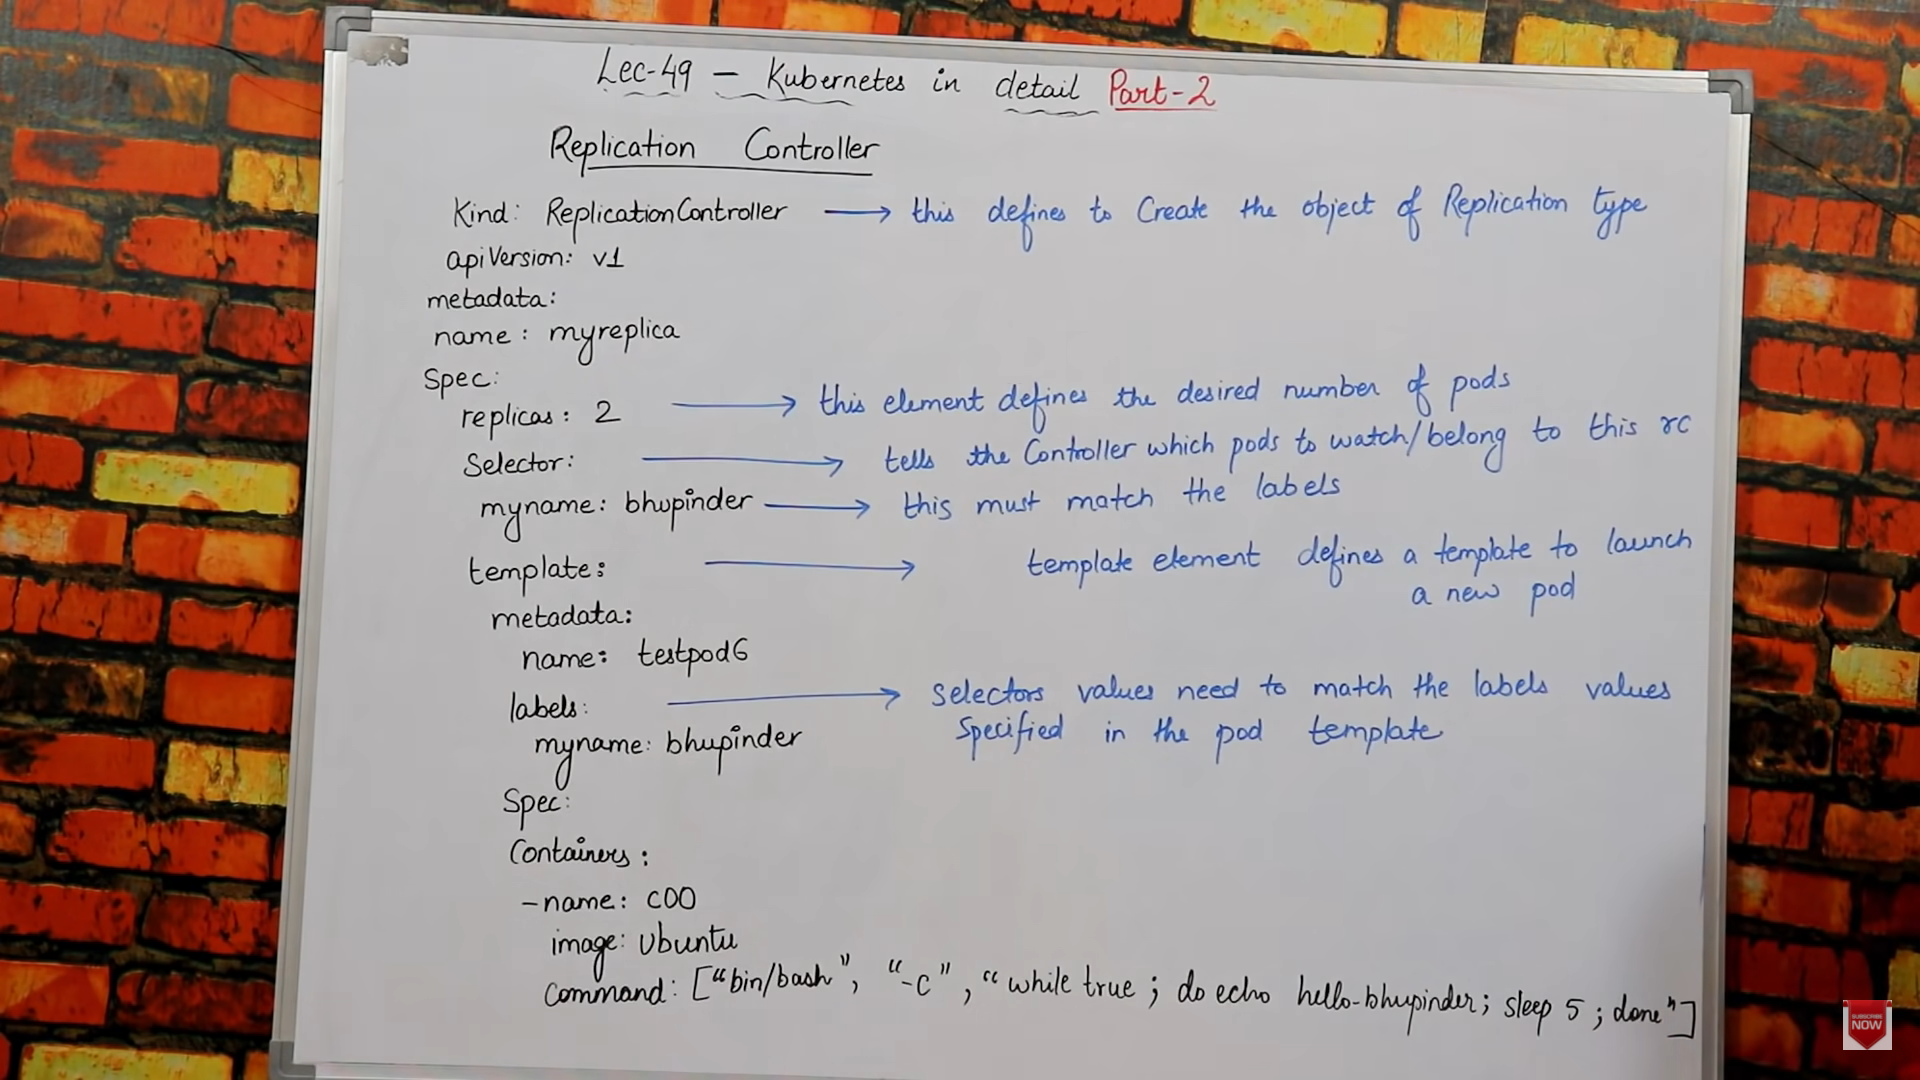 Lec-49 – Kubernetes in detail Part-2
Replication Controller
Kind: ReplicationController → this defines to Create the object of Replication type
apiVersion: v1
metadata:
name: myreplica
Spec:
replicas: 2 → this element defines the desired number of pods
Selector: → tells the Controller which pods to watch/belong to this rc
myname: bhupinder → this must match the labels
template: → template element defines a template to launch
a new pod
metadata:
name: testpod6
labels: → Selectors values need to match the labels values
myname: bhupinder Specified in the pod template
Spec:
Containers:
-name: c00
image: Ubuntu
command: ["bin/bash", "-c", "while true; do echo hello-bhupinder; sleep 5; done"]
SUBSCRIBE
NOW